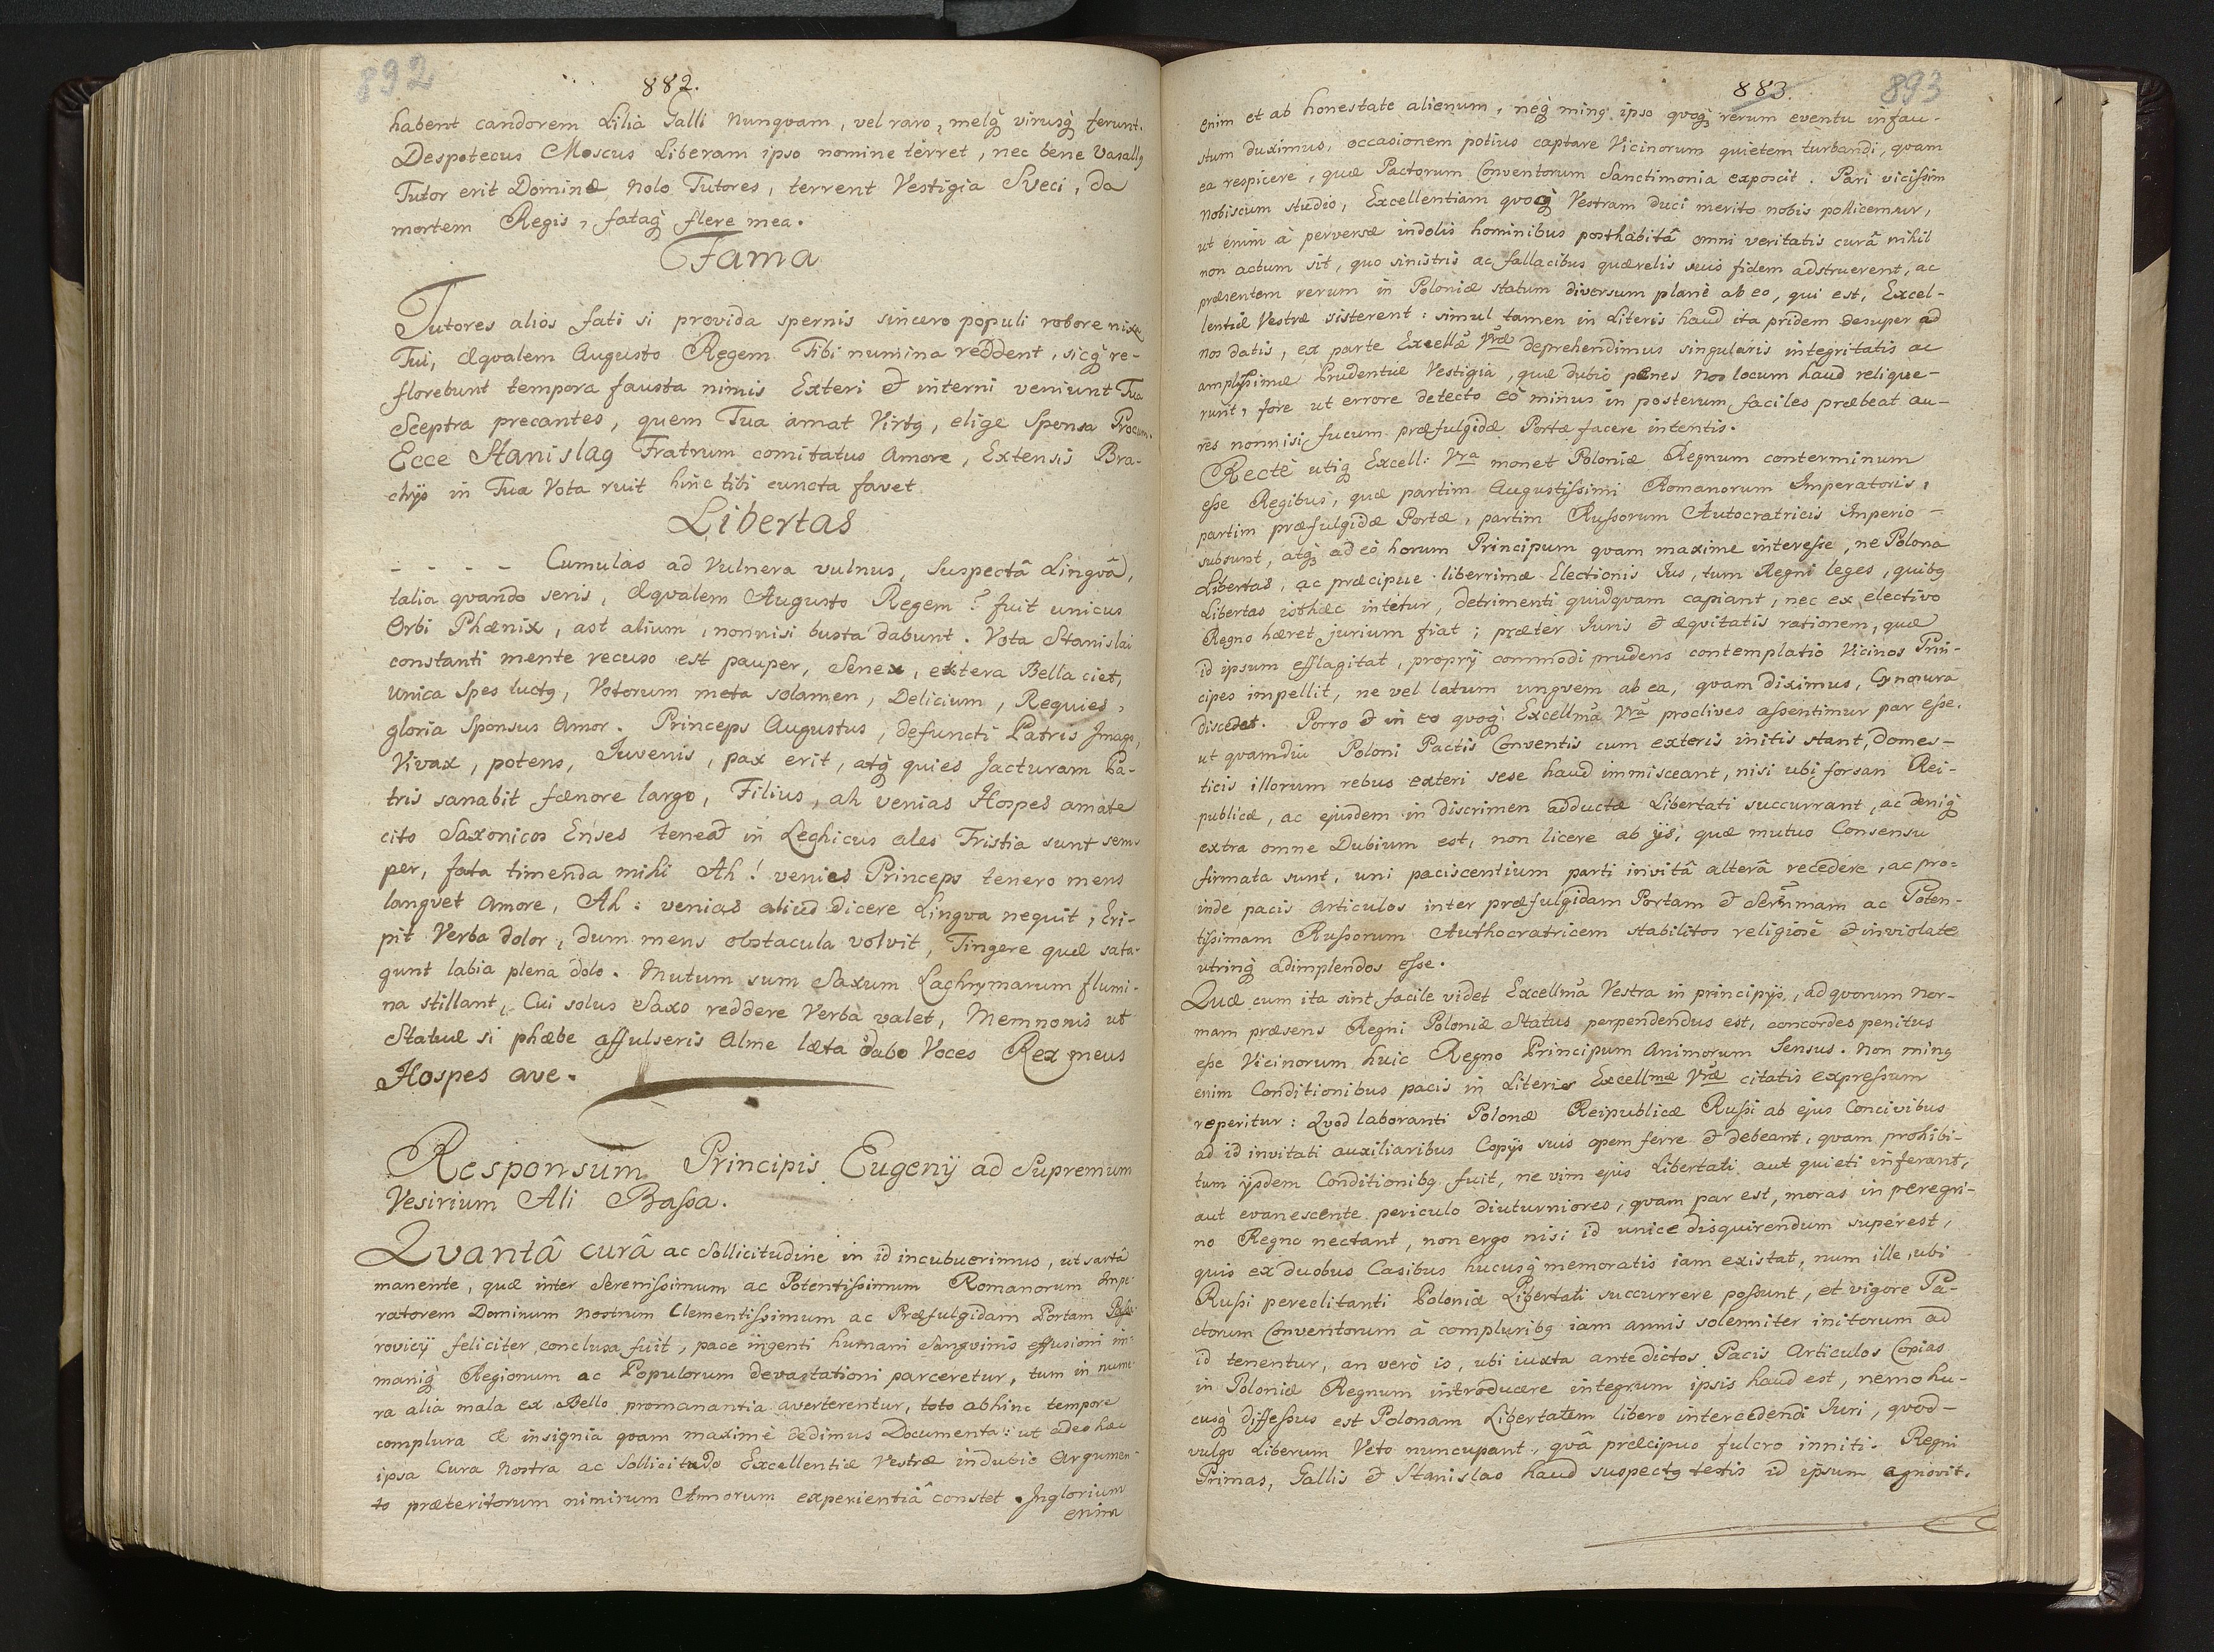 892
882.
habent candorem Lilia Galli Nunqvam, vel raro, melq̀ virusq̀ ferunt.
Despotecus Moscus Liberam ipso nomine terret, nec bene Vasallg
Tutor erit Dominæ, Nolo Tutores, terrent Vestigia Sveci, da
mortem Regis, fataq̀ flere mea.
Fama
Tutores alios fati si provida spernis sincero populi robore nixa
Tui, Æqvalem Augusto Regem Tibi numina reddent, sicq̀ re-
florebunt tempora fausta nimis Exteri & interni veniunt Tua
Sceptra precantes, quem Tua amat Virtg, elige Sponsa Procum.
Ecce Stanislag Fratrum comitatus Amore, Extensis Bra-
chijs in Tua Vota ruit hinc tibi cuncta favet
Libertas
- - - - Cumulas ad Vulnera vulnus, Suspectâ Lingvâ,
talia qvando seris, Æqvalem Augusto Regem? fuit unicus
Orbi Phœnix, ast alium, nonnisi busta dabunt. Vota Stanislai
constanti mente recuso est pauper, Senex, extera Bella ciet,
Unica Spes luctg, Votorum meta solamen, Delicium, Requies,
gloria Sponsus Amor. Princeps Augustus, defuncti Patris Imago,
Vivax, potens, Iuvenis, pax erit, atq̀ quies Jacturam Pa-
tris sanabit fænore largo, Filius, ah venias Hospes amate
cito Saxonicos Enses teneat in Leghicus ales Tristia sunt sem-
per, fata timenda mihi Ah! venies Princeps tenero mens
langvet Amore, Ah: venias aliud dicere Lingva nequit, Eri-
pit Verba dolor, dum mens obstacula volvit, Tingere quæ sata-
gunt labia plena dolo. Mutum sum Saxum Lachrymarum flumi-
na stillant, Cui solus Saxo reddere Verba valet, Memnonis ut
Statuæ si phæbe affulseris Alme læta dabo Voces Rex meus
Hospes ave.
Responsum Principis Eugenÿ ad Supremum
Vesirium Ali Bassa.
Qvantâ curâ ac Sollicitudine in id incubuerimus, ut sartâ
manente, quæ inter Serenissimum ac Potentissimum Romanorum Impe-
ratorem Dominum Nostrum Clementissimum ac Præfulgidam Portam
rovicÿ feliciter conclusa fuit, pace ingenti humani Sangvinis effusioni im-
maniq̀ Regionum ac Populorum devastationi parceretur, tum in nume-
ra alia mala ex Bello promanantia averterentur, toto abhinc tempore
complura & insignia qvam maximè dedimus Documenta: ut adeo hæc
ipsa Cura Nostra ac Sollicitudo Excellentiæ Vestræ indubio Argumen-
to præteritorum nimirum Annorum experientiâ constet. Inglorium
enim
893
883.
enim et ab honestate alienum, neq̀ ming ipso qvoq̀ rerum eventu infau-
stum duximus, occasionem potius captare Vicinorum quietem turbandi, qvam
ea respicere, quæ Pactorum Conventorum Sanctimonia exposcit. Pari vicissim
Nobiscum studio, Excellentiam qvoq̀ Vestram duci merito nobis pollicemur,
ut enim à perversæ indolis hominibus posthabitâ omni veritatis curâ nihil
non actum sit, quo sinistris ac fallacibus quærelis suis fidem adstruerent, ac
præsentem rerum in Poloniæ statum diversum planè ab eo, qui est, Excel-
lentiæ Vestræ sisterent: simul tamen in Literis haud ita pridem desuper ad
nos datis, ex parte Excellæ Vræ deprehendimus singularis integritatis ac
amplissimæ Prudentiæ Vestigia, quæ dubio penes Nos locum haud relique-
runt, fore ut errore detecto eò minus in posterum faciles præbeat au-
res nonnisi fucum præfulgidæ Portæ facere intentis.
Rectè utiq̀ Excell: Vra monet Poloniæ Regnum conterminum
esse Regibus, quæ partim Augustissimi Romanorum Imperatoris,
partim præfulgidæ Portæ, partim Russorum Autocratricis Imperio -
subsunt, atq̀ ad eò horum Principum qvam maxime interesse, ne Polona
Libertas, ac præcipue liberrimæ Electionis Ius, tum Regni leges, quibg
Libertas isthæc intetur, detrimenti quidqvam capiant, nec ex electivo
Regno hæret jurium fiat; præter Iuris & æqvitatis rationem, quæ
id ipsum efflagitat, proprÿ commodi prudens contemplatio Vicinos Prin-
cipes impellit, ne vel latum ungvem ab ea, qvam diximus, Cynosura
discedat. Porro & in eo qvoq̀ Excellma Vra proclives assentimur par esse.
ut qvamdiu Poloni Pactis Conventis cum exteris initis stant, domes-
ticis illorum rebus exteri sese haud immisceant, nisi ubi forsan Rei-
publicæ, ac ejusdem in discrimen adductæ Libertati succurrant, ac deniq̀
extra omne Dubium est, non licere ab ÿs, quæ mutuo Consensu
firmata sunt, uni paciscentium parti invitâ alterâ recedere, ac pro-
inde pacis Articulos inter præfulgidam Portam & Serñmam ac Poten-
tissimam Russorum Authocratricem stabilitos religiosè & inviolate
utrinq̀ adimplendos esse.
Quæ cum ita sint facile videt Excellma Vestra in principÿs, ad qvorum Nor-
mam præsens Regni Poloniæ Status perpendendus est, concordes penitus
esse Vicinorum huic Regno Principum Animorum Sensus. Non ming
enim Conditionibus pacis in Literis Excellmæ Vræ citatis expressum
reperitur: Qvod laboranti Polonæ Reipublicæ Russi ab ejus Concivibus
ad id invitati auxiliaribus Copÿs suis opem ferre & debeant, qvam prohibi-
tum ÿsdem Conditionibg fuit, ne vim ejus Libertati aut quieti inferant,
aut evanescente periculo diuturniores, qvam par est, moras in peregri-
no Regno nectant, non ergo nisi id unice disquirendum superest,
quis ex duobus Casibus hucusq̀ memoratis iam existat, num ille, ubi
Russi pereclitanti Poloniæ Libertati succurrere possunt, et vigore Pa-
ctorum Conventorum à compluribg iam annis solenniter initorum ad
id tenentur, an verò is, ubi iuxta antedictos Pacis Articulos Copias
in Poloniæ Regnum introducere integrum ipsis haud est, nemo hu-
cusq̀ diffessus est Polonam Libertatem libero intercedendi Iuri, qvod-
vulgo Liberum Veto nuncupant, qvâ præcipuo fulcro inniti. Regni
Primas, Gallis & Stanislao haud suspectg testis id ipsum agnovit.